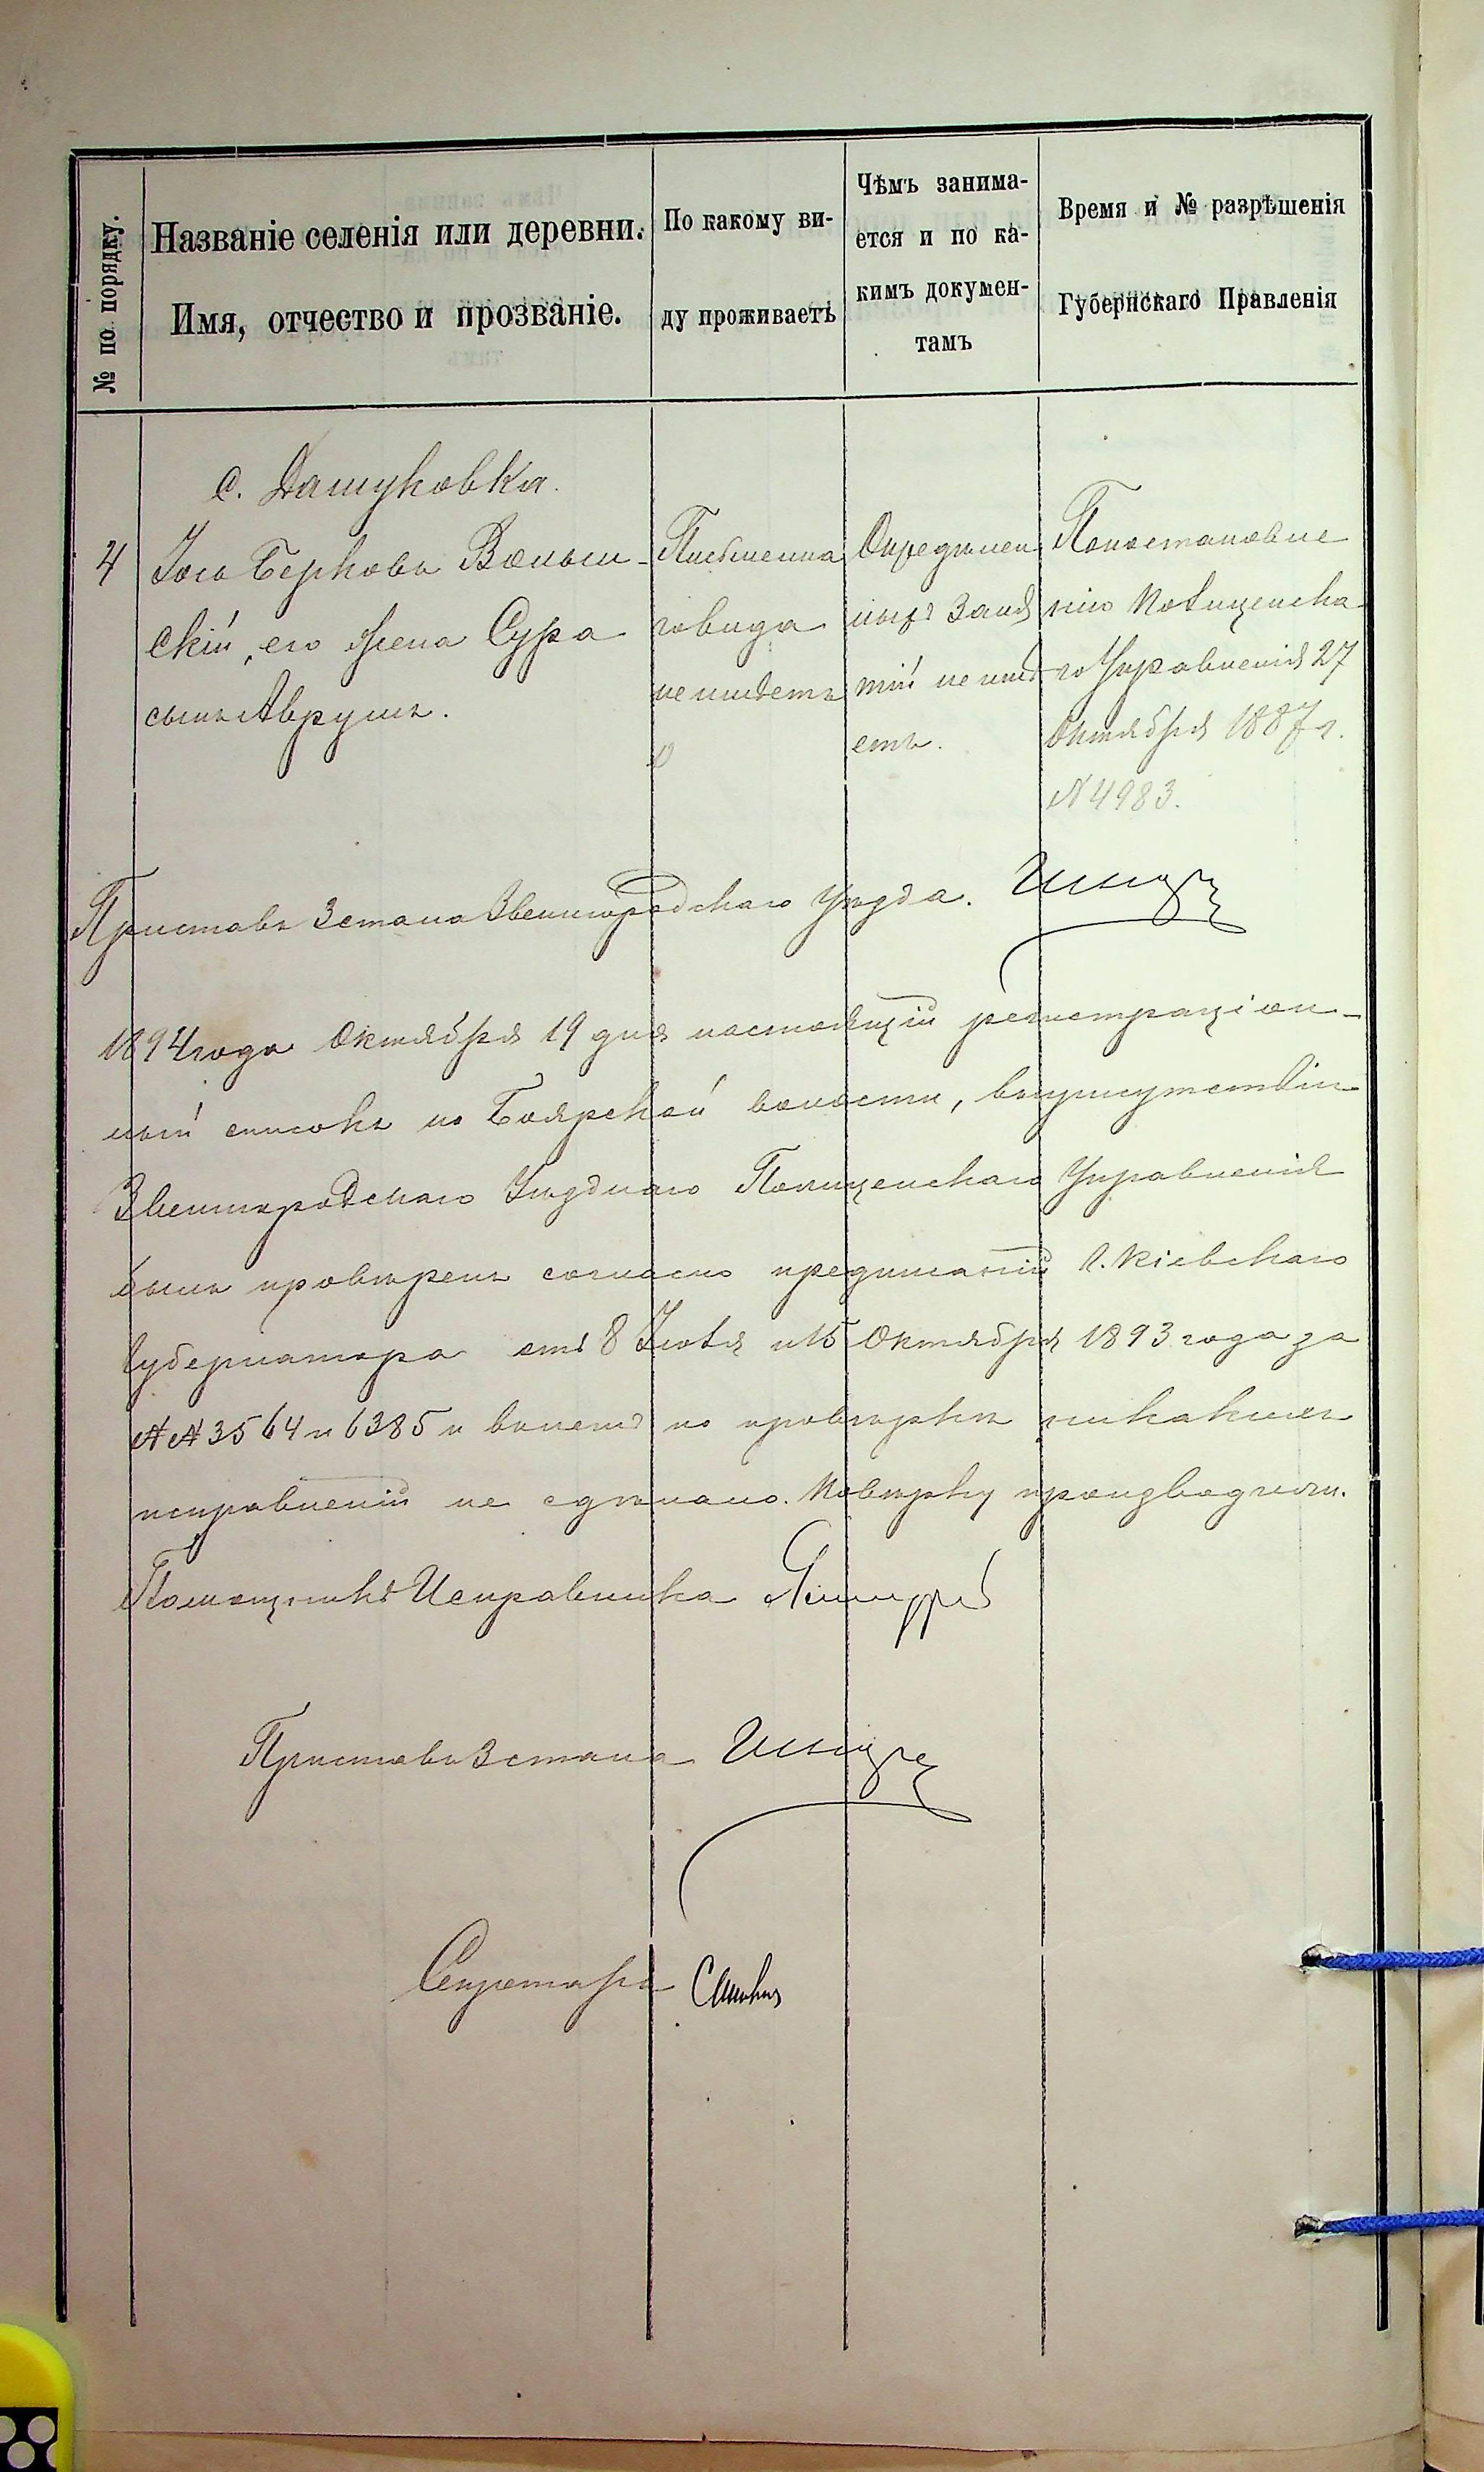 № по порядку.
Названіе селенія или деревни.
Имя, отчество и прозваніе.
По какому ви-
ду проживаетъ
Чѣмъ занима-
ется и по ка-
кимъ докумен-
тамъ
Время и № разрѣшенія
Губернскаго Правленія
с. Дашуковка.
4
Іось Берковъ Волын-
скій, его жена Сура
сынъ Аврумъ.
Письменна
го вида
не имѣетъ
Опредѣлен
ныхъ заня
тій не имѣ
етъ.
По постановле
нію Полицейска
го Управленія 27
Октября 1887 г.
№ 4983.
Приставъ 3 стана Звенигородскаго уѣзда.
1894 года Октября 19 дня настоящій регистраціон-
ный списокъ по Боярской волости, въ присутствіи
Звенигородскаго Уѣзднаго Полицейскаго Управленія
былъ провѣренъ согласно предписаній Г. Кіевскаго
Губернатора отъ 8 Іюля и 15 Октября 1893 года за
№№ 3564 и 6385 и въ немъ по провѣркѣ никакихъ
исправленій не сдѣлано. Повѣрку производили.
Помощникъ Исправника
Приставъ 3 стана
Секретарь